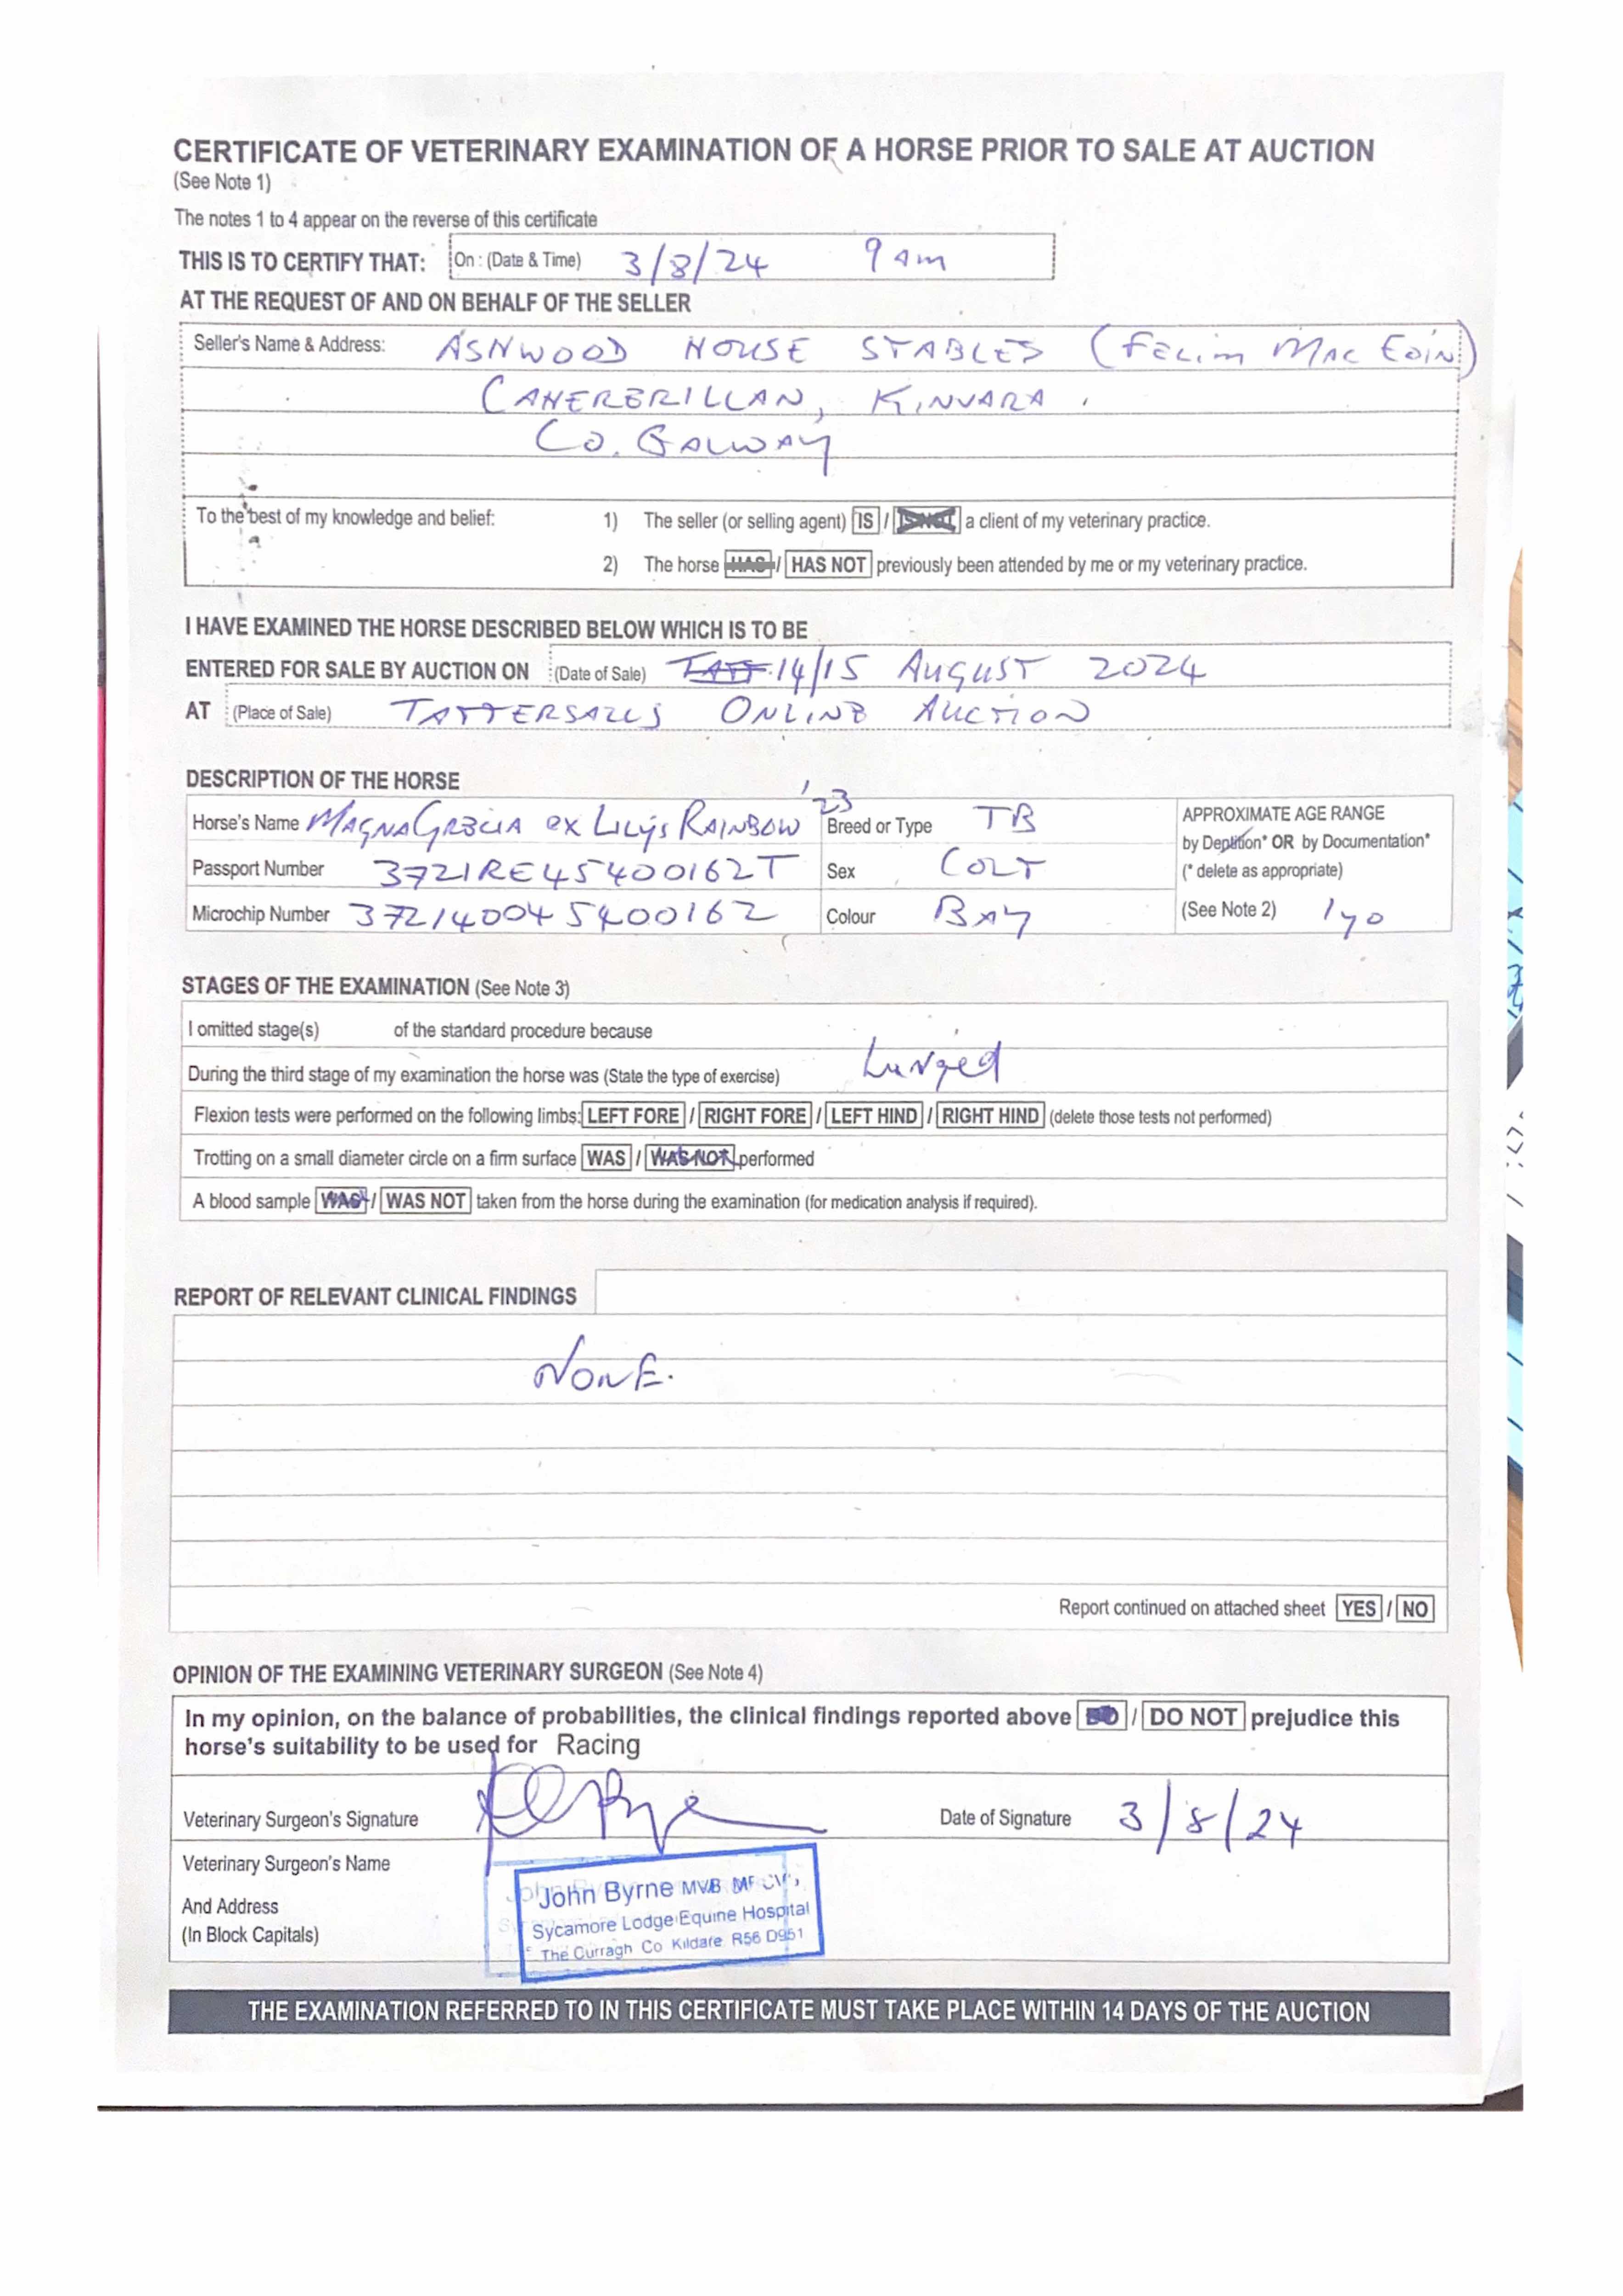 CERTIFICATE OF VETERINARY EXAMINATION OF A HORSE PRIOR TO SALE AT AUCTION
(See Note 1)
The notes 1 to 4 appear on the reverse of this certificate
THIS IS TO CERTIFY THAT: On : (Date & Time) 3/8/24 9 am
AT THE REQUEST OF AND ON BEHALF OF THE SELLER
Seller's Name & Address: ASHWOOD HOUSE STABLES (FELIM MAC EOIN)
CAHERERILLAN, KINVARA.
CO. GALWAY
To the best of my knowledge and belief: 1) The seller (or selling agent) IS / IS NOT a client of my veterinary practice.
2) The horse HAS / HAS NOT previously been attended by me or my veterinary practice.
I HAVE EXAMINED THE HORSE DESCRIBED BELOW WHICH IS TO BE
ENTERED FOR SALE BY AUCTION ON (Date of Sale) TATT 14/15 AUGUST 2024
AT (Place of Sale) TATTERSALLS ONLINE AUCTION
DESCRIPTION OF THE HORSE
Horse's Name MAGNA GRECIA ex LILYS RAINBOW '23 Breed or Type TB APPROXIMATE AGE RANGE
by Deptition* OR by Documentation*
Passport Number 372IRE45400162T Sex COLT (* delete as appropriate)
Microchip Number 372140045400162 Colour BAY (See Note 2) 1yo
STAGES OF THE EXAMINATION (See Note 3)
I omitted stage(s) of the standard procedure because
During the third stage of my examination the horse was (State the type of exercise) Lunged
Flexion tests were performed on the following limbs: LEFT FORE / RIGHT FORE / LEFT HIND / RIGHT HIND (delete those tests not performed)
Trotting on a small diameter circle on a firm surface WAS / WAS NOT performed
A blood sample WAS / WAS NOT taken from the horse during the examination (for medication analysis if required).
REPORT OF RELEVANT CLINICAL FINDINGS
NONE.
Report continued on attached sheet YES / NO
OPINION OF THE EXAMINING VETERINARY SURGEON (See Note 4)
In my opinion, on the balance of probabilities, the clinical findings reported above DO / DO NOT prejudice this
horse's suitability to be used for Racing
Veterinary Surgeon's Signature Date of Signature 3/8/24
Veterinary Surgeon's Name
And Address
(In Block Capitals)
John Byrne MVB
Sycamore Lodge Equine Hospital
The Curragh Co Kildare R56 D951
THE EXAMINATION REFERRED TO IN THIS CERTIFICATE MUST TAKE PLACE WITHIN 14 DAYS OF THE AUCTION